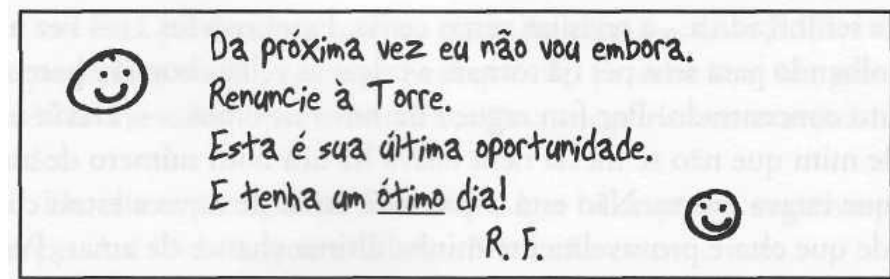 Da próxima vez eu não vou embora.
Renuncie à Torre.
Esta é sua última oportunidade.
E tenha um ótimo dia!
R. F.